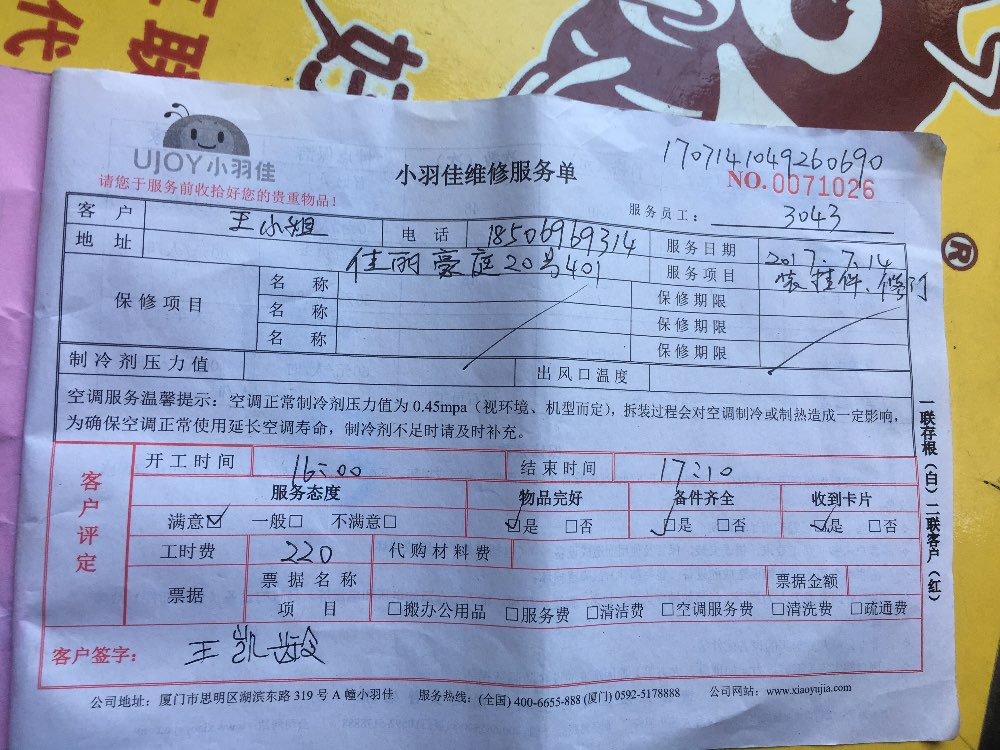 好
联
代
UJOY小羽佳
请您于服务前收拾好您的贵重物品!
小羽佳维修服务单
1707141049260690
NO.0071026
服务员工: 3043
客户 王小姐 电话 18506969314 服务日期 2017.7.14
地址 佳丽豪庭20号401 服务项目 装挂件、修门
保修项目 名称 保修期限
名称 保修期限
名称 保修期限
制冷剂压力值 出风口温度
空调服务温馨提示:空调正常制冷剂压力值为0.45mpa(视环境、机型而定),拆装过程会对空调制冷或制热造成一定影响,
为确保空调正常使用延长空调寿命,制冷剂不足时请及时补充。
客户评定
开工时间 16:00 结束时间 17:10
服务态度 物品完好 备件齐全 收到卡片
满意☑ 一般□ 不满意□ ☑是 □否 ☑是 □否 ☑是 □否
工时费 220 代购材料费
票据 票据名称 票据金额
项目 □搬办公用品 □服务费 □清洁费 □空调服务费 □清洗费 □疏通费
客户签字: 王凯龄
公司地址:厦门市思明区湖滨东路319号A幢小羽佳 服务热线:(全国)400-6655-888(厦门)0592-5178888 公司网站:www.xiaoyujia.com
一联存根(白)二联客户(红)
®